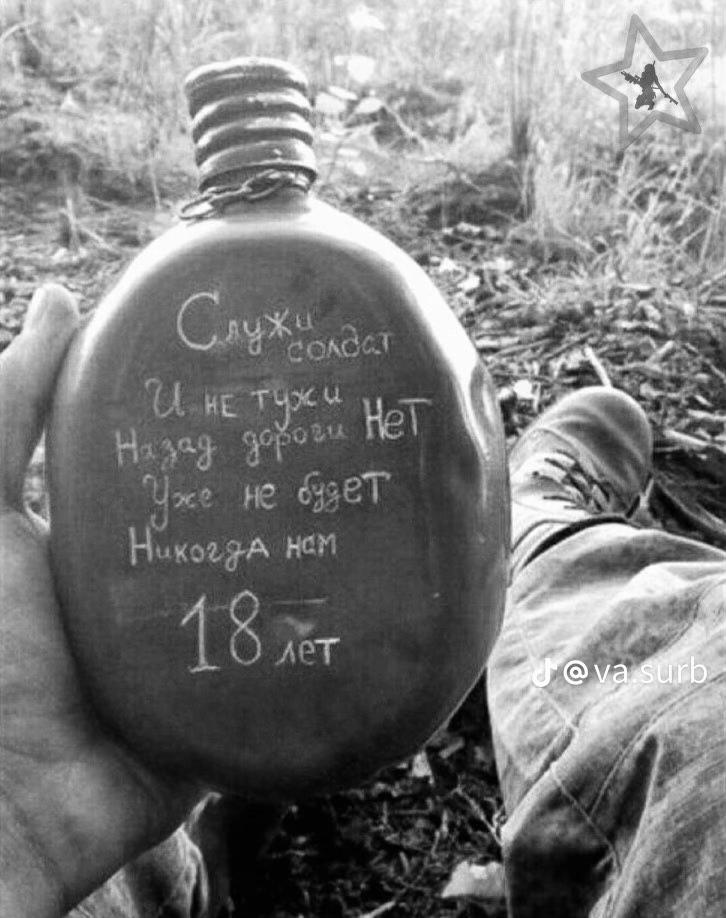 Служи
солдат
И не тужи
Назад дороги Нет
Уже не будет
Никогда нам
18 лет
@va.surb